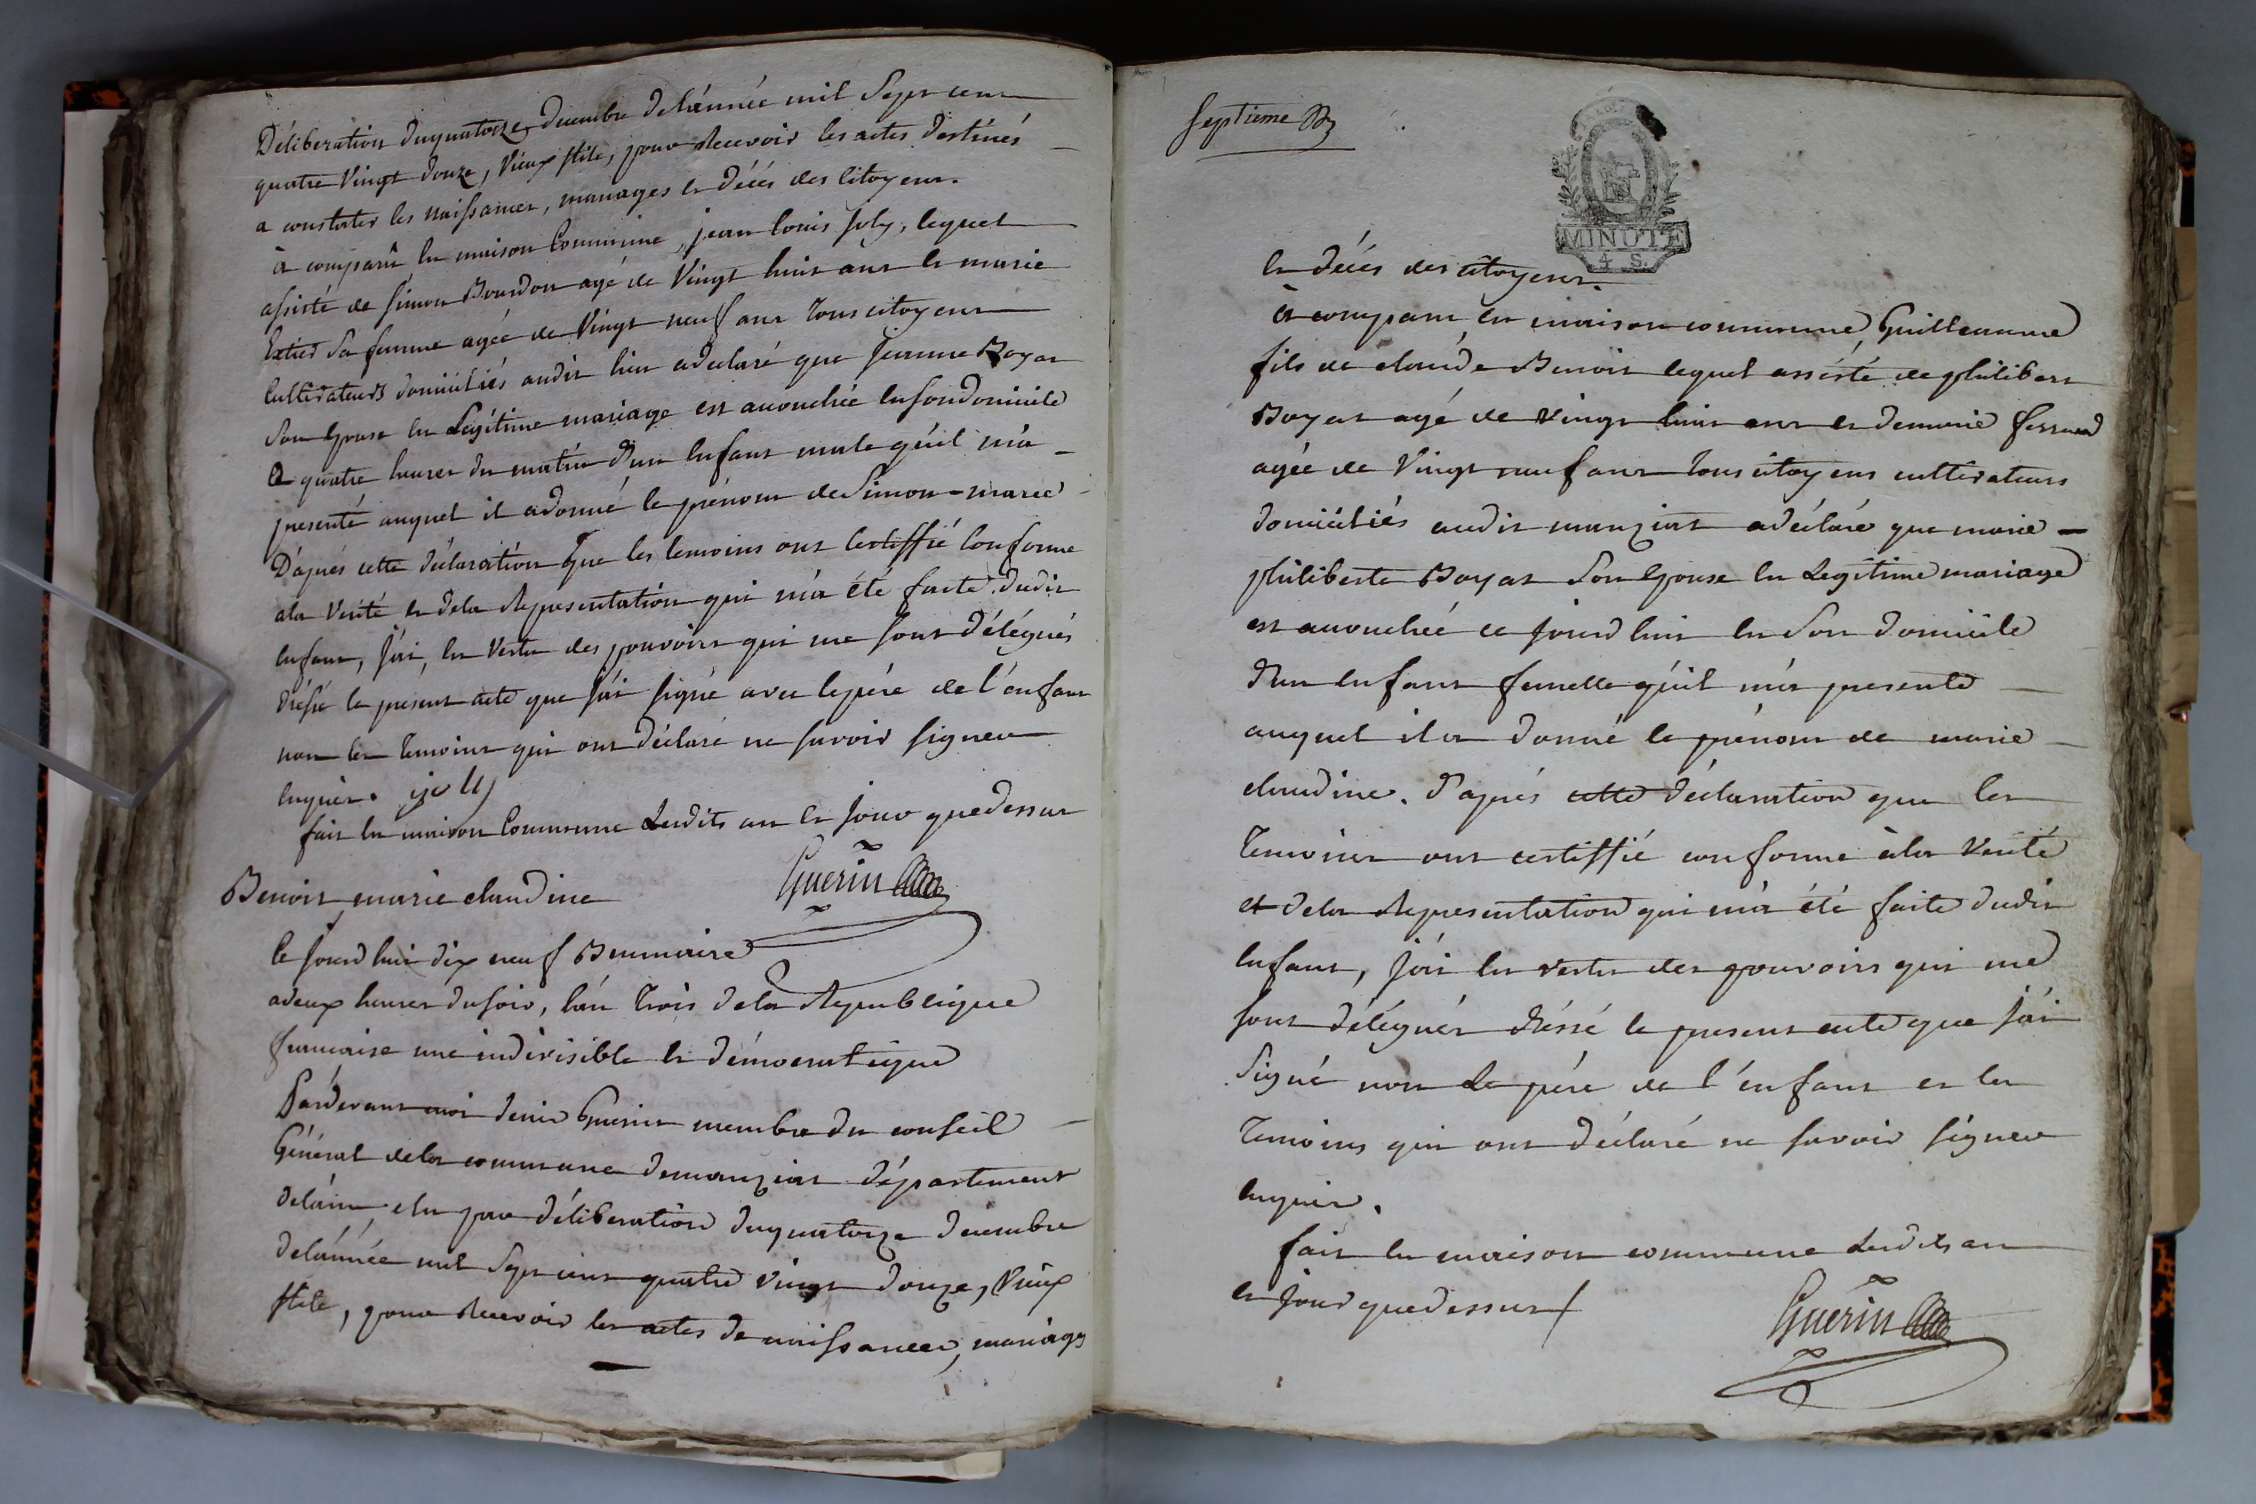 Déliberation duquatorze decembre delánnée mil Sept cent
quatre Vingt douze, Vieux stile, pour Recevoir les actes destinés
a constater les naissances, mariages et décés des Citoyens.
à comparû en maison Commune, jean louis joly, lequel
assisté de simon Bourdon agé de Vingt huit ans et marie
sa femme agée de Vingt neuf ans tous citoyens
Cultivateurs domiciliés audit lieu adeclaré que jeanne Boyat
Son Epouse en Légitime mariage est accouchée en son domicile
a quatre heures du matin d'un Enfant male qu'il m'a
presenté auquel il adonné le prénom de Simon-marie
D'aprés cette déclaration que les temoins ont Certiffié Conforme
ala Verité et dela Representation qui m'a été faite dudit
enfant, j'ai, en Vertu des pouvoirs qui me sont délégués
dréssé le present acte que j'ai signé avec lepére de l'enfant
non les temoins qui ont déclaré ne savoir signer
enquis. joly
fait en maison Commune Lesdits an et jour quedessus
Guerin
Benoit marie claudine
Ce jourd'hui dix neuf Brumaire
adeux heures dusoir, l'an trois dela Republique
francaise une indivisible et démocratique
Pardevant moi denis Guerin membre du conseil
Général dela commune demanziat département
delain elu par déliberation duquatorze decembre
delánnée mil Sept cent quatre vingt douze, Vieux
stile, pour Recevoir les actes de naissances, mariages
Septieme
MINUTE
4 S.
et décés des citoyens.
à comparu en maison commune, Guilleaume
fils de claude Benoit lequel assisté de philibert
Boyat agé de vingt huit ans et demarie
agée de Vingt neuf ans tous citoyens cultivateurs
domiciliés audit manziat adéclaré que marie
philiberte Boyat Son Epouse en Legitime mariage
est accouchée ce jourd'hui en Son domicile
d'un enfant femelle qu'il m'a presenté
auquel il a donné le prénom de marie
claudine. d'aprés cette déclaration que les
temoins ont certiffié conforme à la Verité
et dela Representation qui m'a été faite dudit
Enfant, j'ai en vertu des pouvoirs qui me
sont délégués dréssé le present acte que j'ai
Signé non Le pére de l'enfant et les
temoins qui ont déclaré ne savoir signer
enquis.
fait en maison commune Lesdits an
et jour quedessus
Guerin